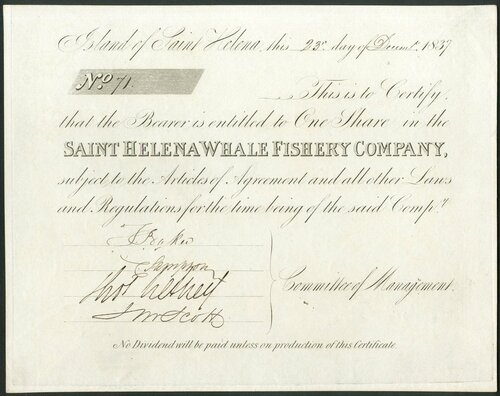 Island of Saint Helena, this 23d. day of Decemt. 1837
No. 71.
This is to Certify
that the Bearer is entitled to One Share in the
SAINT HELENA WHALE FISHERY COMPANY,
subject to the Articles of Agreement and all other Laws
and Regulations for the time being of the said Comp.y
Scott
Committee of Management.
No Dividend will be paid unless on production of this Certificate